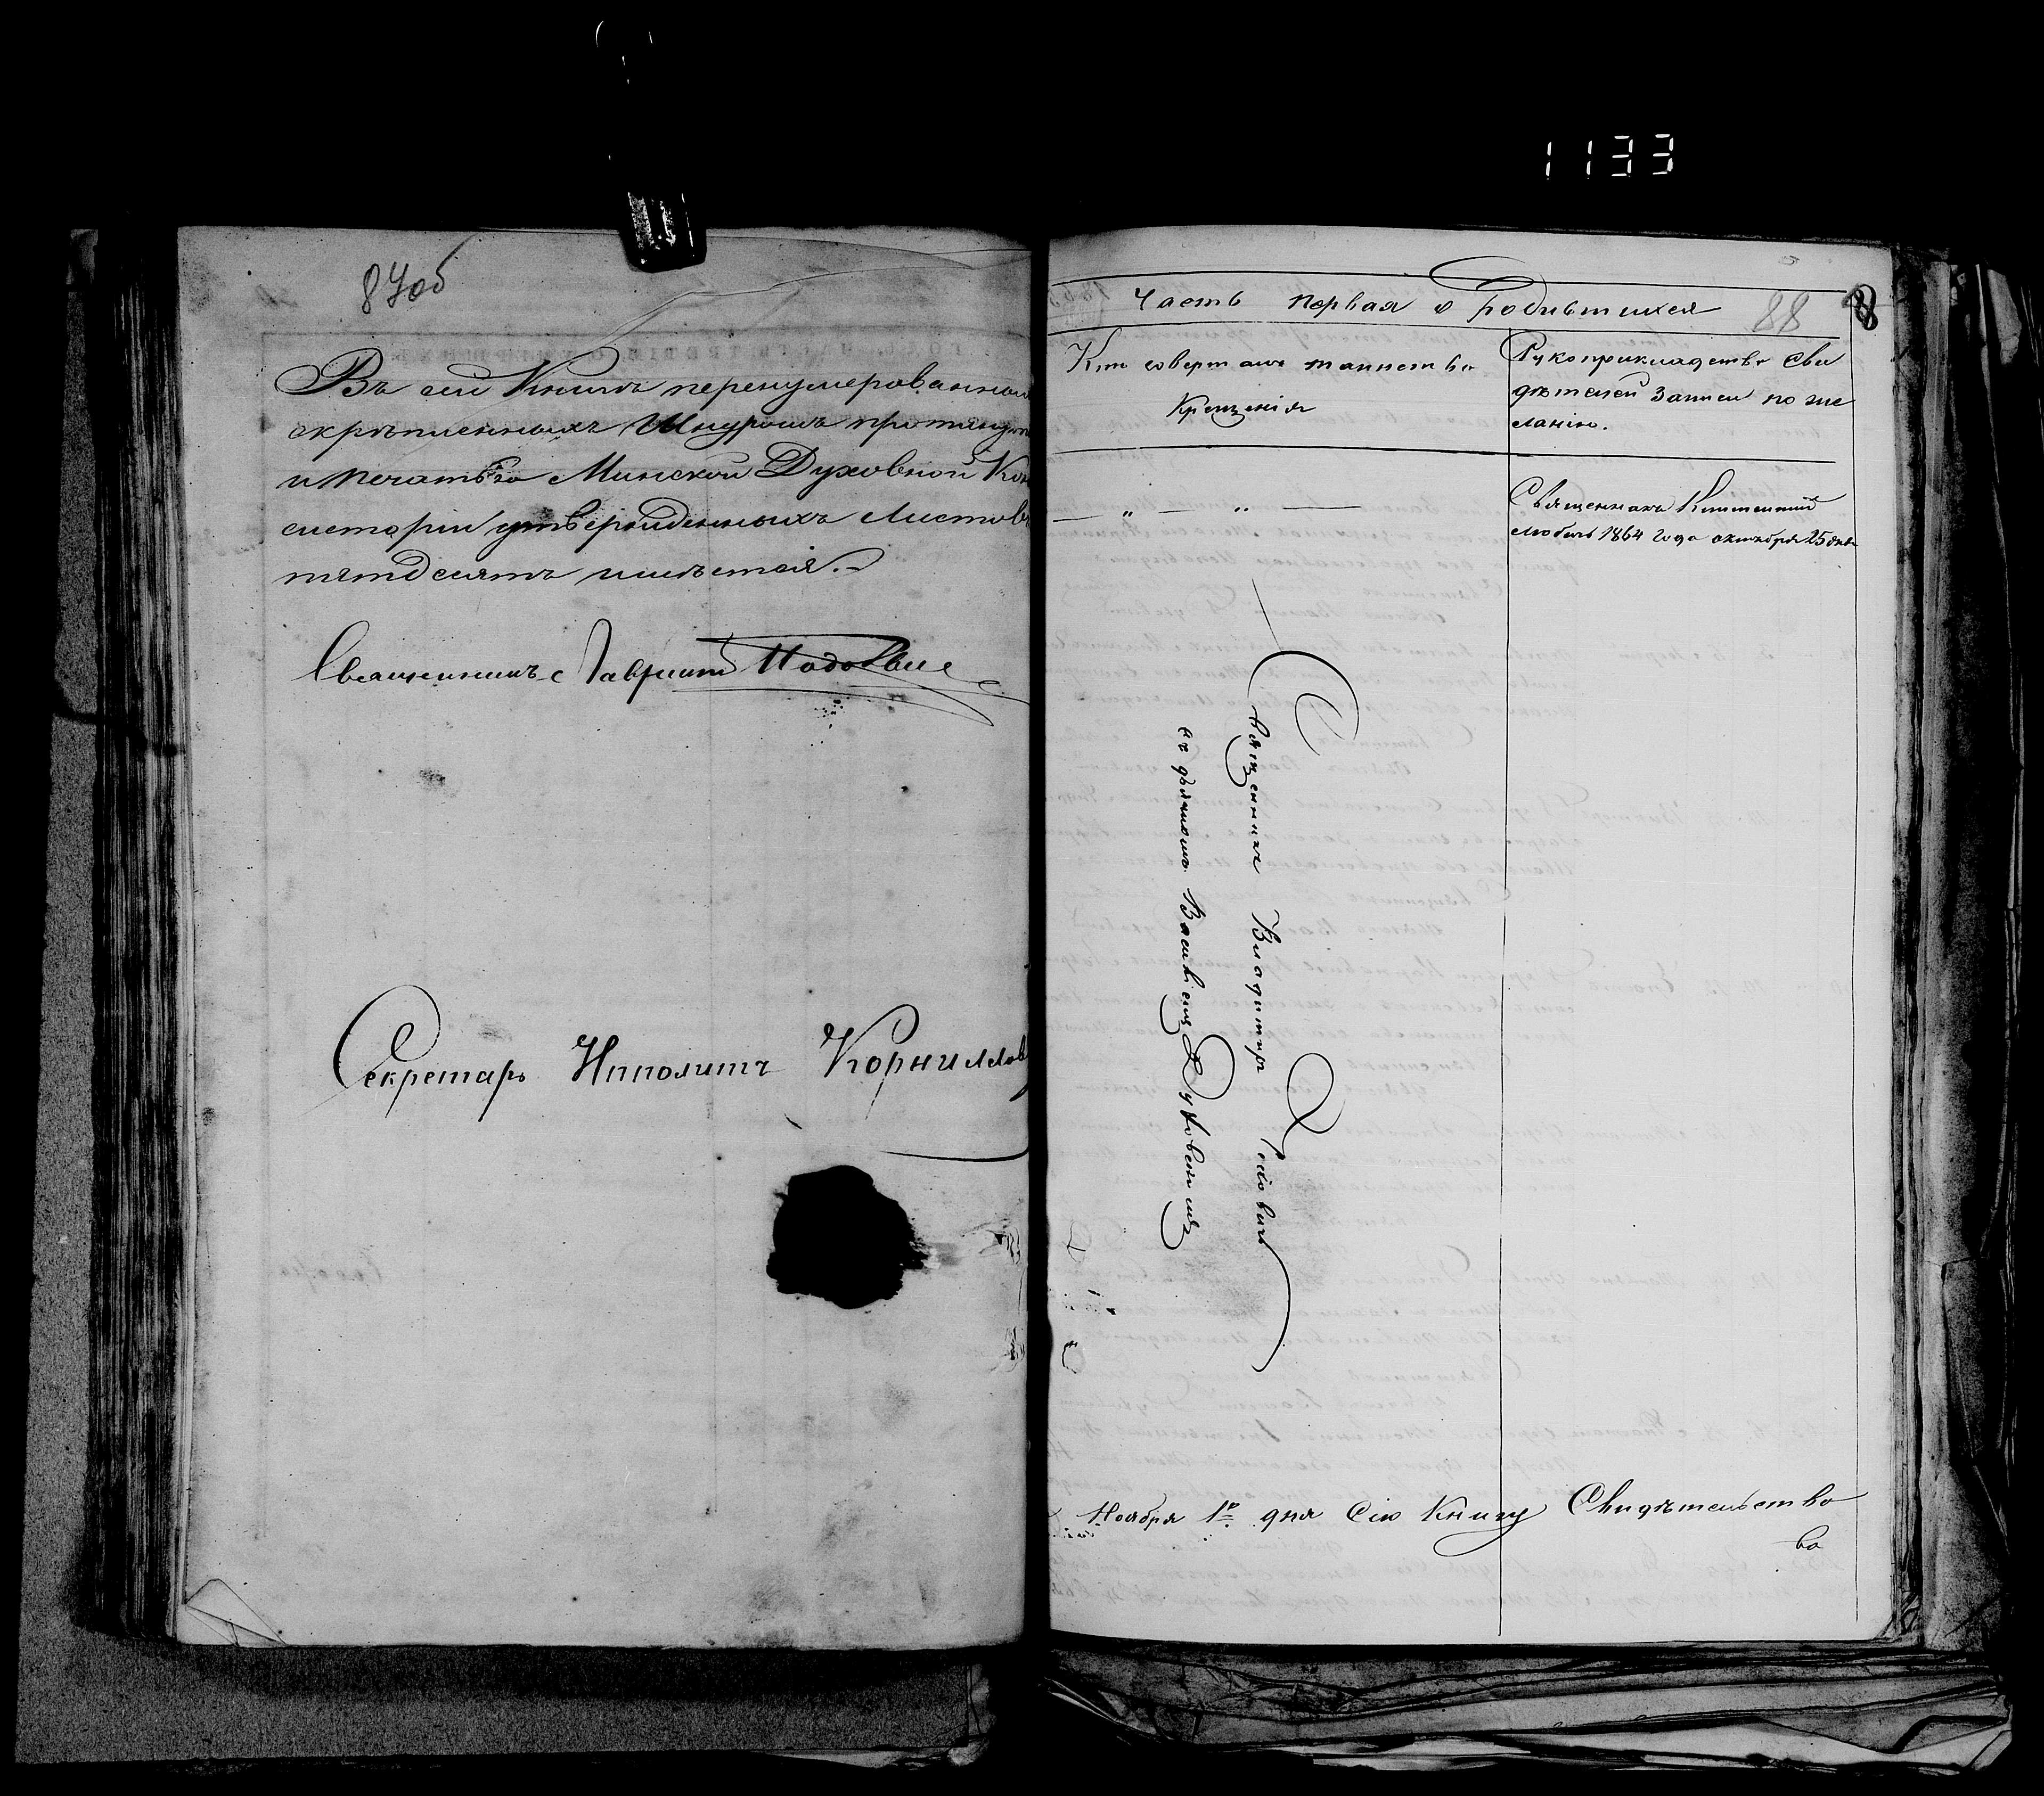 1133
87об
Въ сей Книгѣ перенумерованныхъ
скрѣпленныхъ Шнуромъ протянут
и печатью Минской Духовной Кон
систоріи утвержденныхъ Листовъ
пятдесятъ имѣется.
Священникъ Гавріилъ
Секретарь Ипполитъ Корнилов
Часть первая о Родившихся 88
Кто совершалъ таинство
Крещенія
Рукоприкладство сви
дѣтелей записи по же
ланію.
— „ — „ —
Священникъ
1864 года октября 25 дня
Священникъ Владиміръ
съ дьячкомъ Васильемъ
Ноября 1го дня Сію Книгу Свидѣтельство
ва